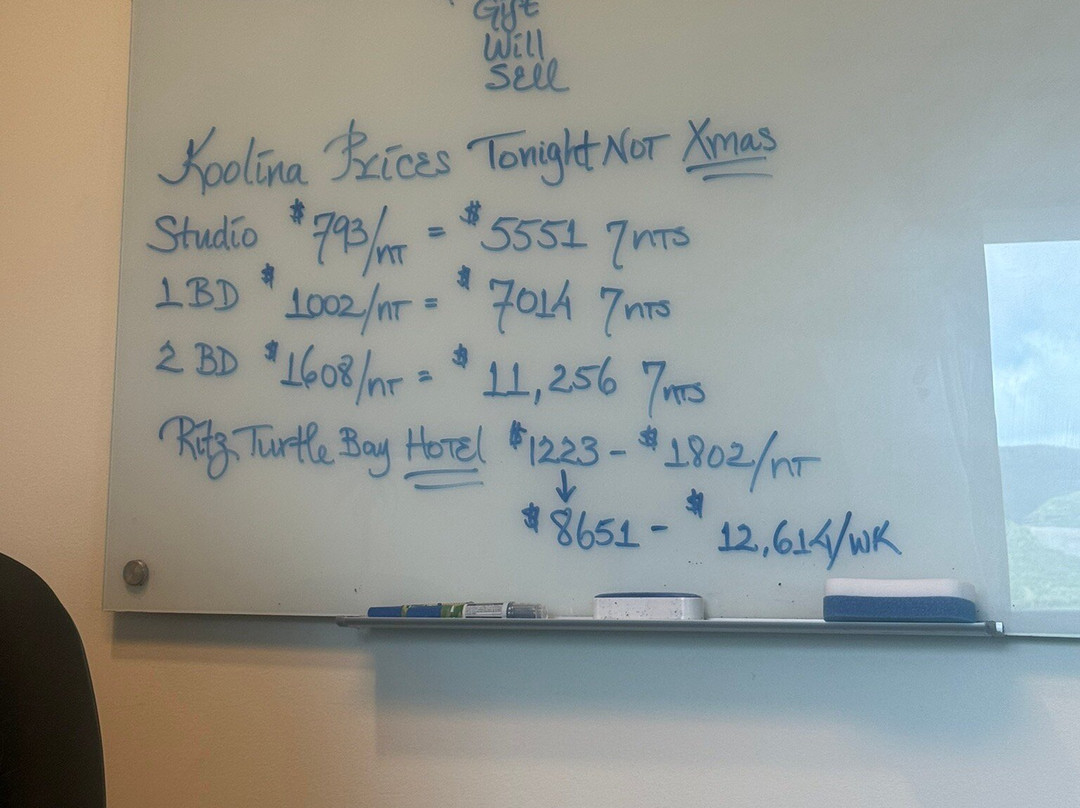 Gift
Will
Sell
Koolina Prices Tonight NOT Xmas
Studio $793/NT = $5551 7NTS
1BD $1002/NT = $7014 7NTS
2 BD $1608/NT = $11,256 7NTS
Ritz Turtle Bay HOTEL $1223 - $1802/NT
$8651 - $12,614/WK